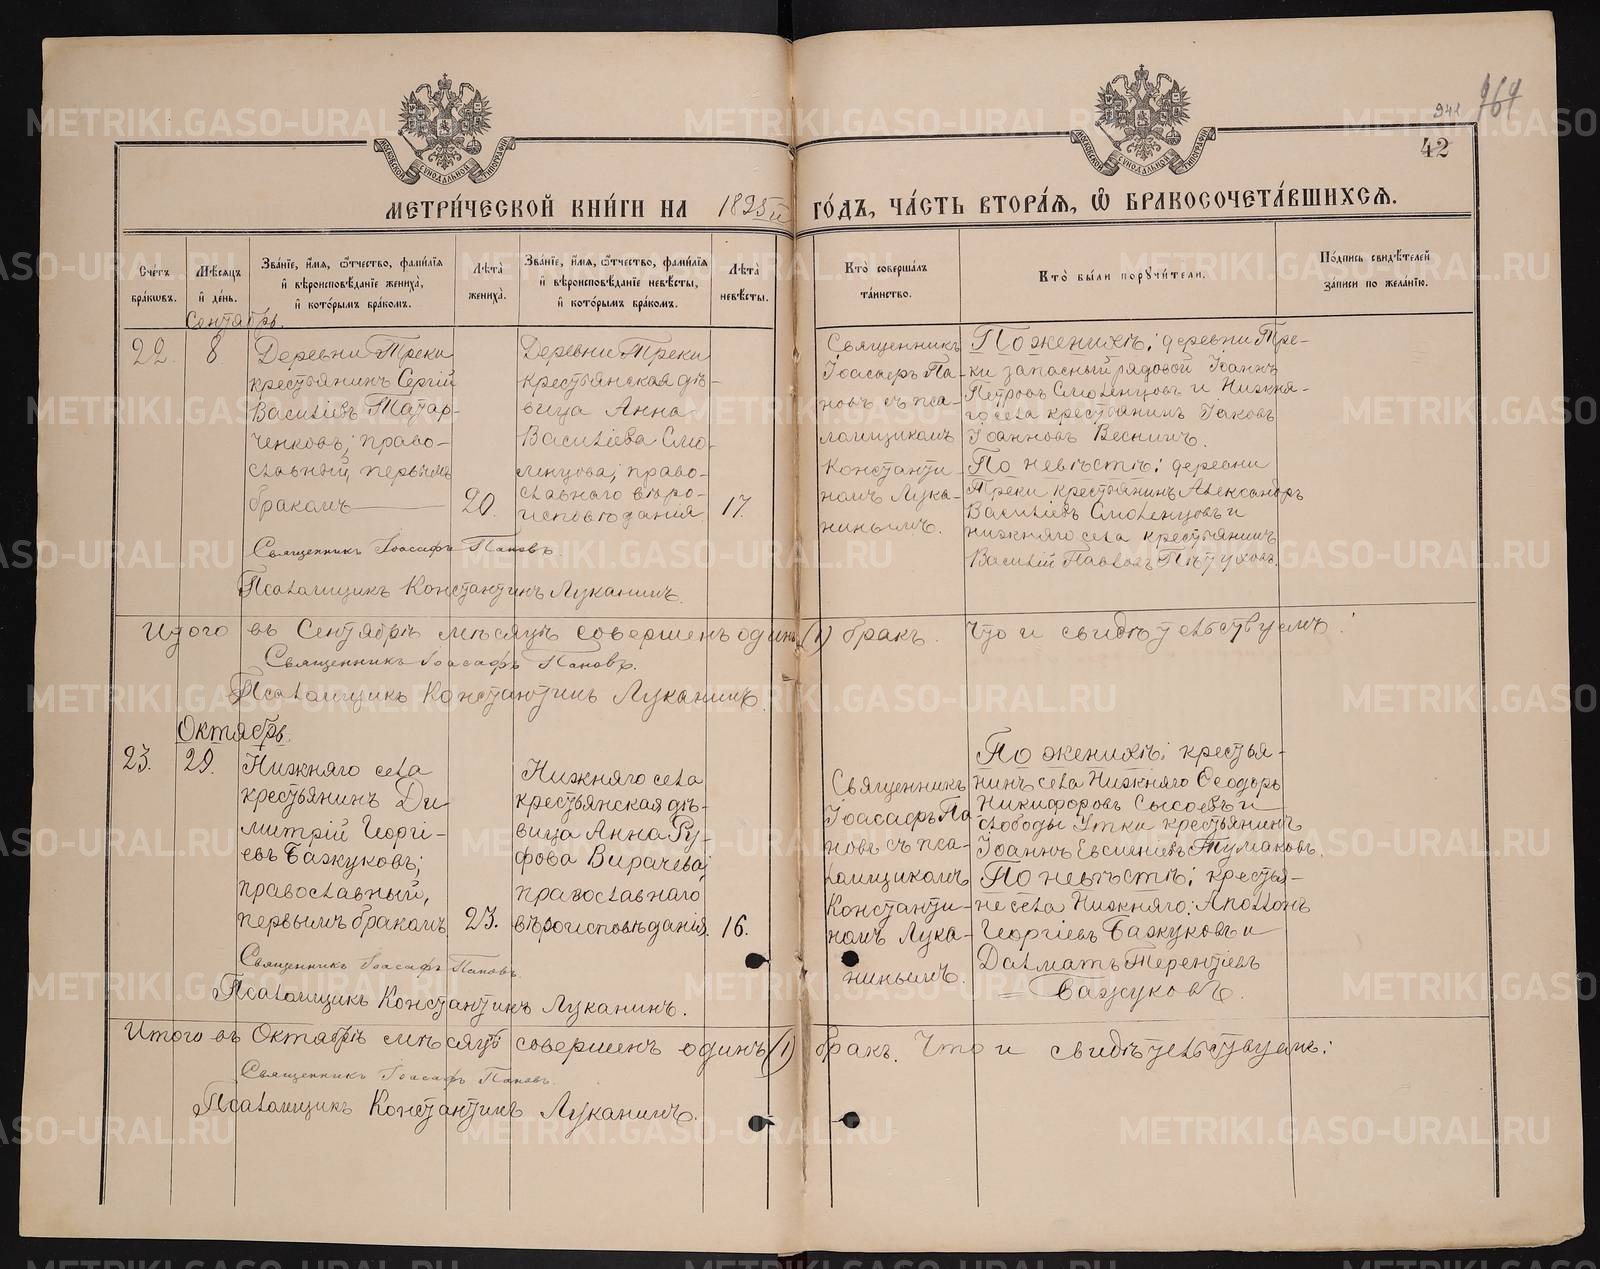 941 464
42
МОСКОВСКОЙ СѴНОДАЛЬНОЙ ТИПОГРАФІИ
МОСКОВСКОЙ СѴНОДАЛЬНОЙ ТИПОГРАФІИ
МЕТРИ́ЧЕСКОЙ КНИ́ГИ НА 1895й ГО́ДЪ, ЧА́СТЬ ВТОРА́Я, Ѽ БРАКОСОЧЕТА́ВШИХСЯ.
Сче́тъ бра́ковъ.
Мѣ́сяцъ и҆ де́нь.
Зва́нїе, и҆́мя, ѻ҆́тчество, фами́лїя и҆ вѣроисповѣ́данїе жениха̀, и҆ кото́рымъ бра́комъ.
Лѣ́та жениха̀.
Зва́нїе, и҆́мя, ѻ҆́тчество, фами́лїя и҆ вѣроисповѣ́данїе невѣ́сты, и҆ кото́рымъ бра́комъ.
Лѣ́та невѣ́сты.
Кто̀ соверша́лъ та́инство.
Кто̀ бы́ли порꙋчи́тели.
По́дпись свидѣ́телей за́писи по жела́нїю.
Сентябрь.
22.
8
Деревни Треки
крестьянинъ Сергій
Василіевъ Татар-
ченковъ; право-
славный, первымъ
бракомъ
20.
Деревни Треки
крестьянская дѣ-
вица Анна
Василіева Смо-
ленцова; право-
славнаго вѣро-
исповѣданія
17.
Священникъ
Іоасафъ Па-
новъ съ пса-
ломщикомъ
Константи-
номъ Лука-
нинымъ.
По женихѣ: деревни Тре-
ки запасный рядовой Іоаннъ
Петровъ Смоленцовъ и Нижня-
го села крестьянинъ Іаковъ
Іоанновъ Веснинъ.
По невѣстѣ: деревни
Треки крестьянинъ Александръ
Василіевъ Смоленцовъ и
нижняго села крестьянинъ
Василій Павловъ Пѣтуховъ.
Священникъ Іоасафъ Пановъ.
Псаломщикъ Константинъ Луканинъ.
Итого въ Сентябрѣ мѣсяцѣ совершенъ одинъ (1) бракъ. Что и свидѣтельствуемъ:
Священникъ Іоасафъ Пановъ.
Псаломщикъ Константинъ Луканинъ.
Октябрь.
23.
29.
Нижняго села
крестьянинъ Ди-
митрій Георгі-
евъ Бажуковъ;
православный,
первымъ бракомъ
23.
Нижняго села
крестьянская дѣ-
вица Анна Ру-
фова Вирачева;
православнаго
вѣроисповѣданія.
16.
Священникъ
Іоасафъ Па-
новъ съ пса-
ломщикомъ
Константи-
номъ Лука-
нинымъ.
По женихѣ: крестья-
нинъ села Нижняго Ѳеодоръ
Никифоровъ Сысоевъ и
слободы Утки крестьянинъ
Іоаннъ Евсиніевъ Тумаковъ.
По невѣстѣ: крестья-
не села Нижняго: Аполлонъ
Георгіевъ Бажуковъ и
Далматъ Терентіевъ
Бажуковъ.
Священникъ Іоасафъ Пановъ.
Псаломщикъ Константинъ Луканинъ.
Итого въ Октябрѣ мѣсяцѣ совершенъ одинъ (1) бракъ. Что и свидѣтельствуемъ:
Священникъ Іоасафъ Пановъ.
Псаломщикъ Константинъ Луканинъ.
METRIKI.GASO-URAL.RU